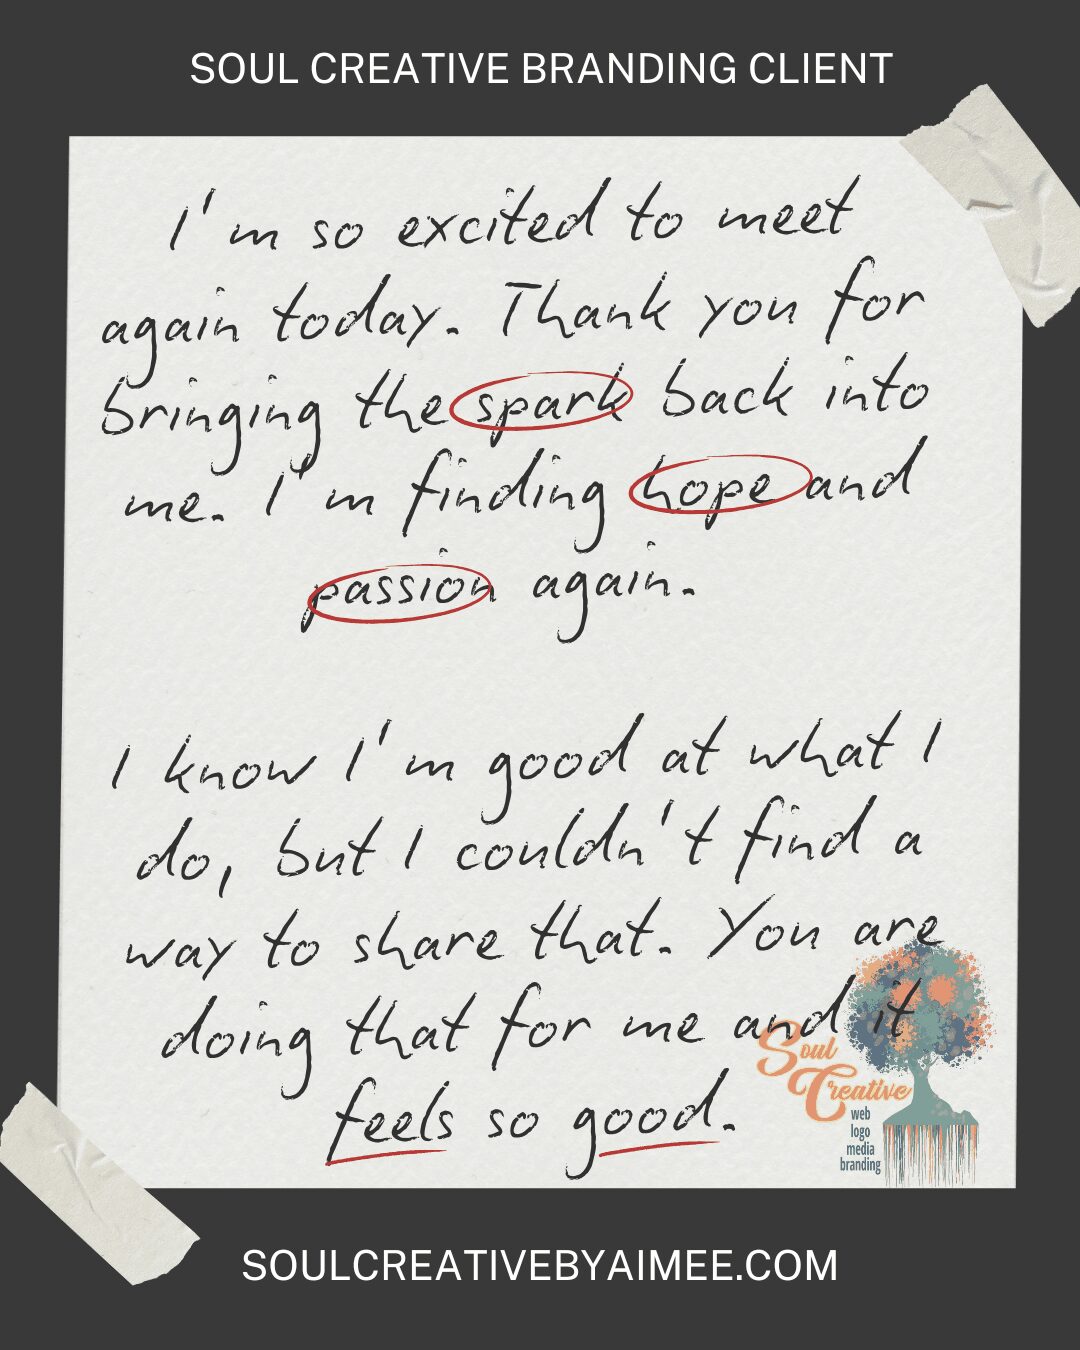 SOUL CREATIVE BRANDING CLIENT
I'm so excited to meet
again today. Thank you for
bringing the spark back into
me. I'm finding hope and
passion again.
I know I'm good at what I
do, but I couldn't find a
way to share that. You are
doing that for me and it
feels so good.
Soul
Creative
web
logo
media
branding
SOULCREATIVEBYAIMEE.COM